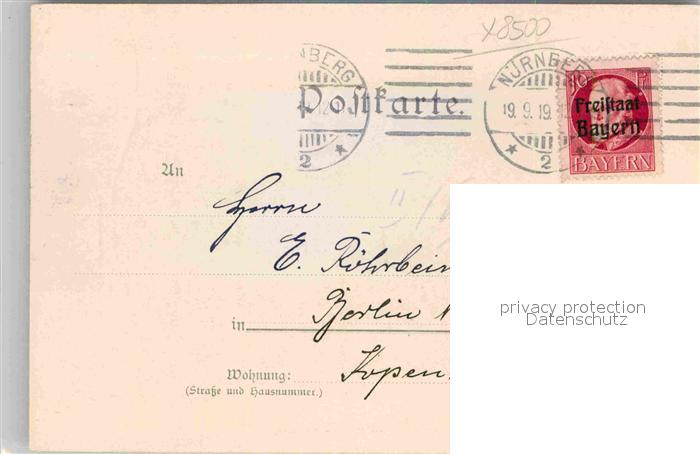 x8500
NÜRNBERG
2
NÜRNBERG
19. 9. 19.
2
10 Pf
Freistaat
Bayern
BAYERN
Postkarte.
An
Herrn
E. Röhrbein
Berlin
in
Wohnung: Kopen
(Straße und Hausnummer.)
privacy protection
Datenschutz